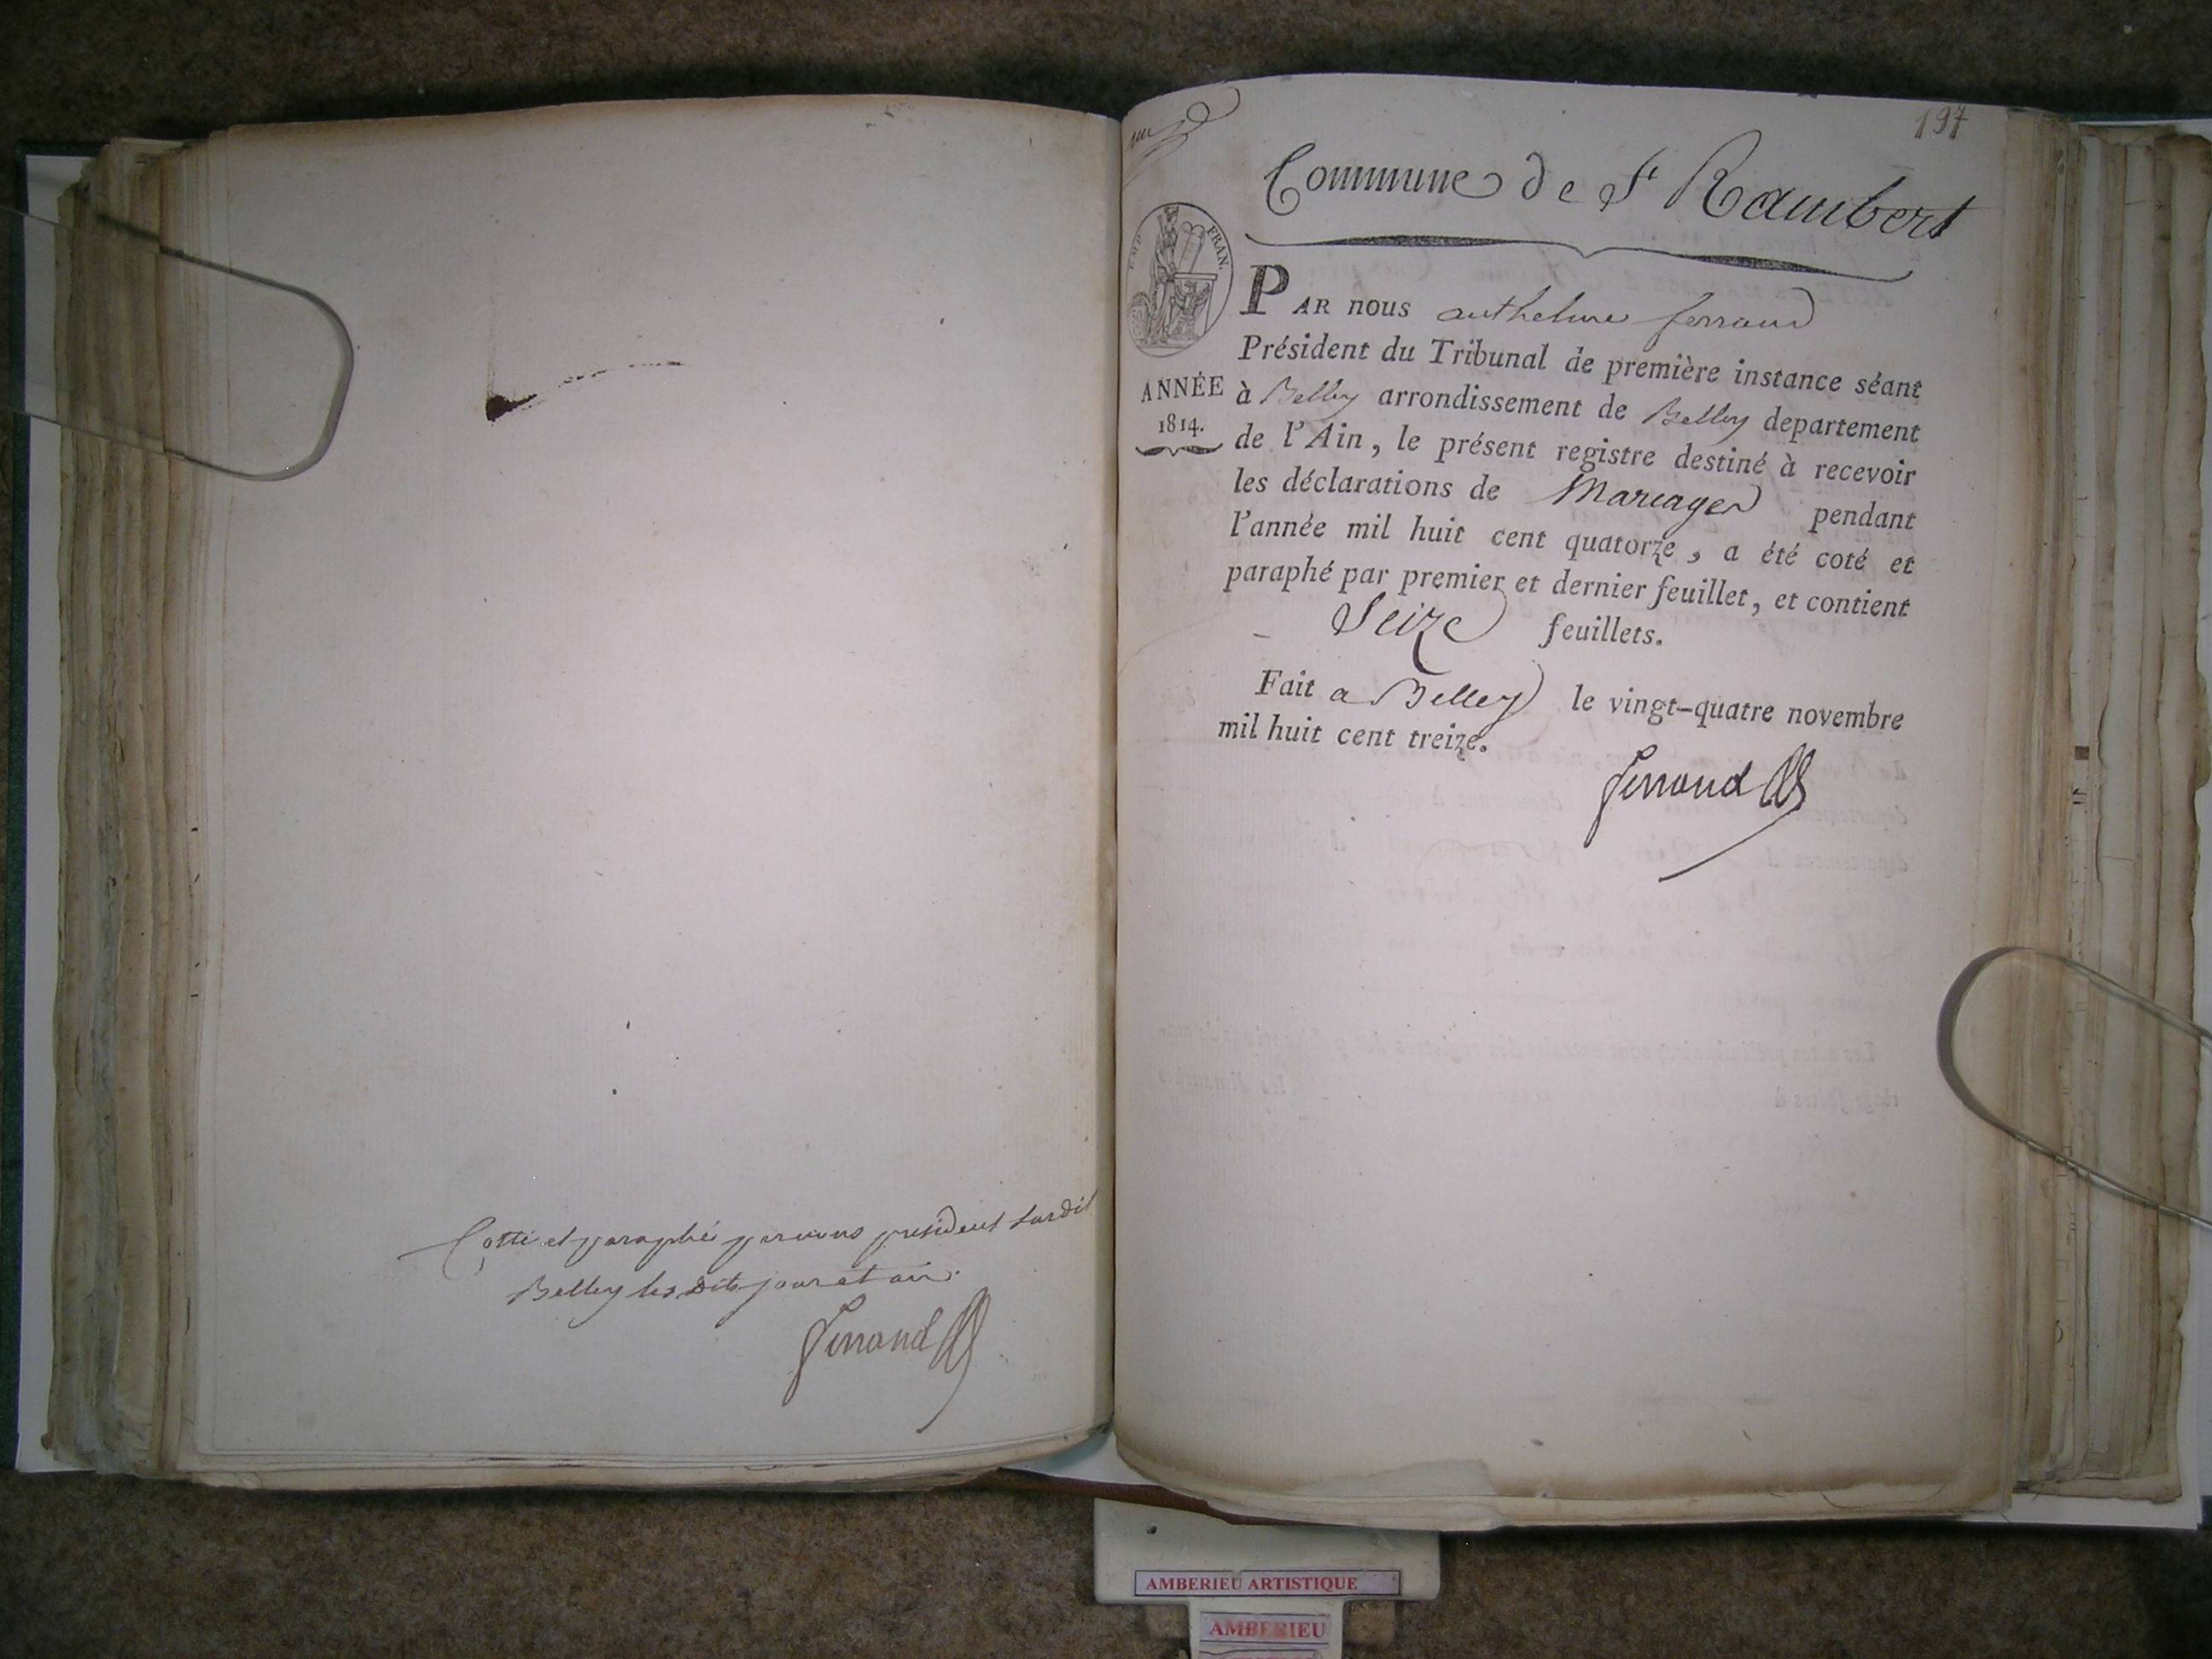 Cotté et paraphé par nous président susdit
Belley les dits jour et an.
Ferrand
197
Commune de St Rambert
EMP. FRAN.
ANNÉE
1814.
PAR nous anthelme ferrand
Président du Tribunal de première instance séant
à Belley arrondissement de Belley departement
de l'Ain, le présent registre destiné à recevoir
les déclarations de Mariages pendant
l'année mil huit cent quatorze, a été coté et
paraphé par premier et dernier feuillet, et contient
Seize feuillets.
Fait a Belley le vingt-quatre novembre
mil huit cent treize.
Ferrand
AMBERIEU ARTISTIQUE
AMBERIEU